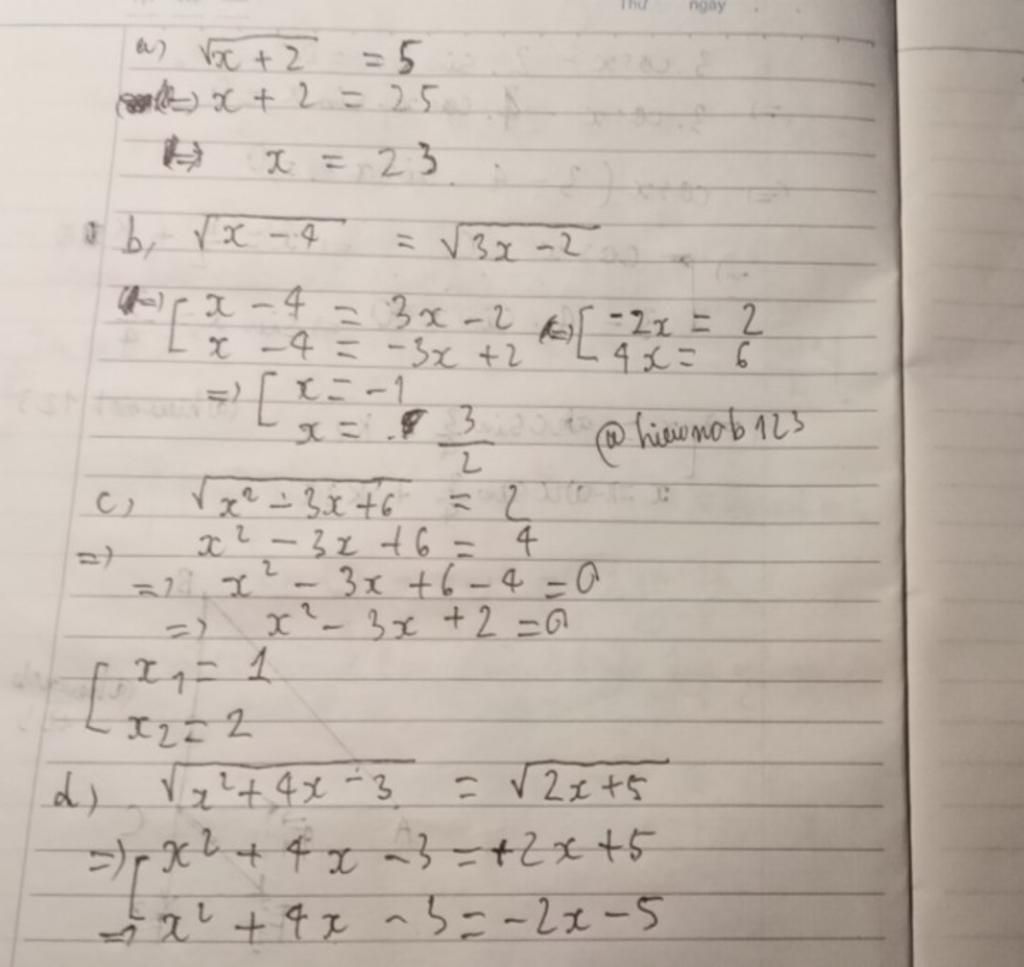 Thứ ngày
a) √x + 2 = 5
<=> x + 2 = 25
<=> x = 23
b, √x - 4 = √3x - 2
<=> [ x - 4 = 3x - 2 <=> [ -2x = 2
x - 4 = -3x + 2 4x = 6
=> [ x = -1
x = 3/2 @hieunab123
c, √x² - 3x + 6 = 2
=> x² - 3x + 6 = 4
=> x² - 3x + 6 - 4 = 0
=> x² - 3x + 2 = 0
[ x₁ = 1
x₂ = 2
d) √x² + 4x - 3 = √2x + 5
=> [ x² + 4x - 3 = +2x + 5
=> x² + 4x - 3 = -2x - 5